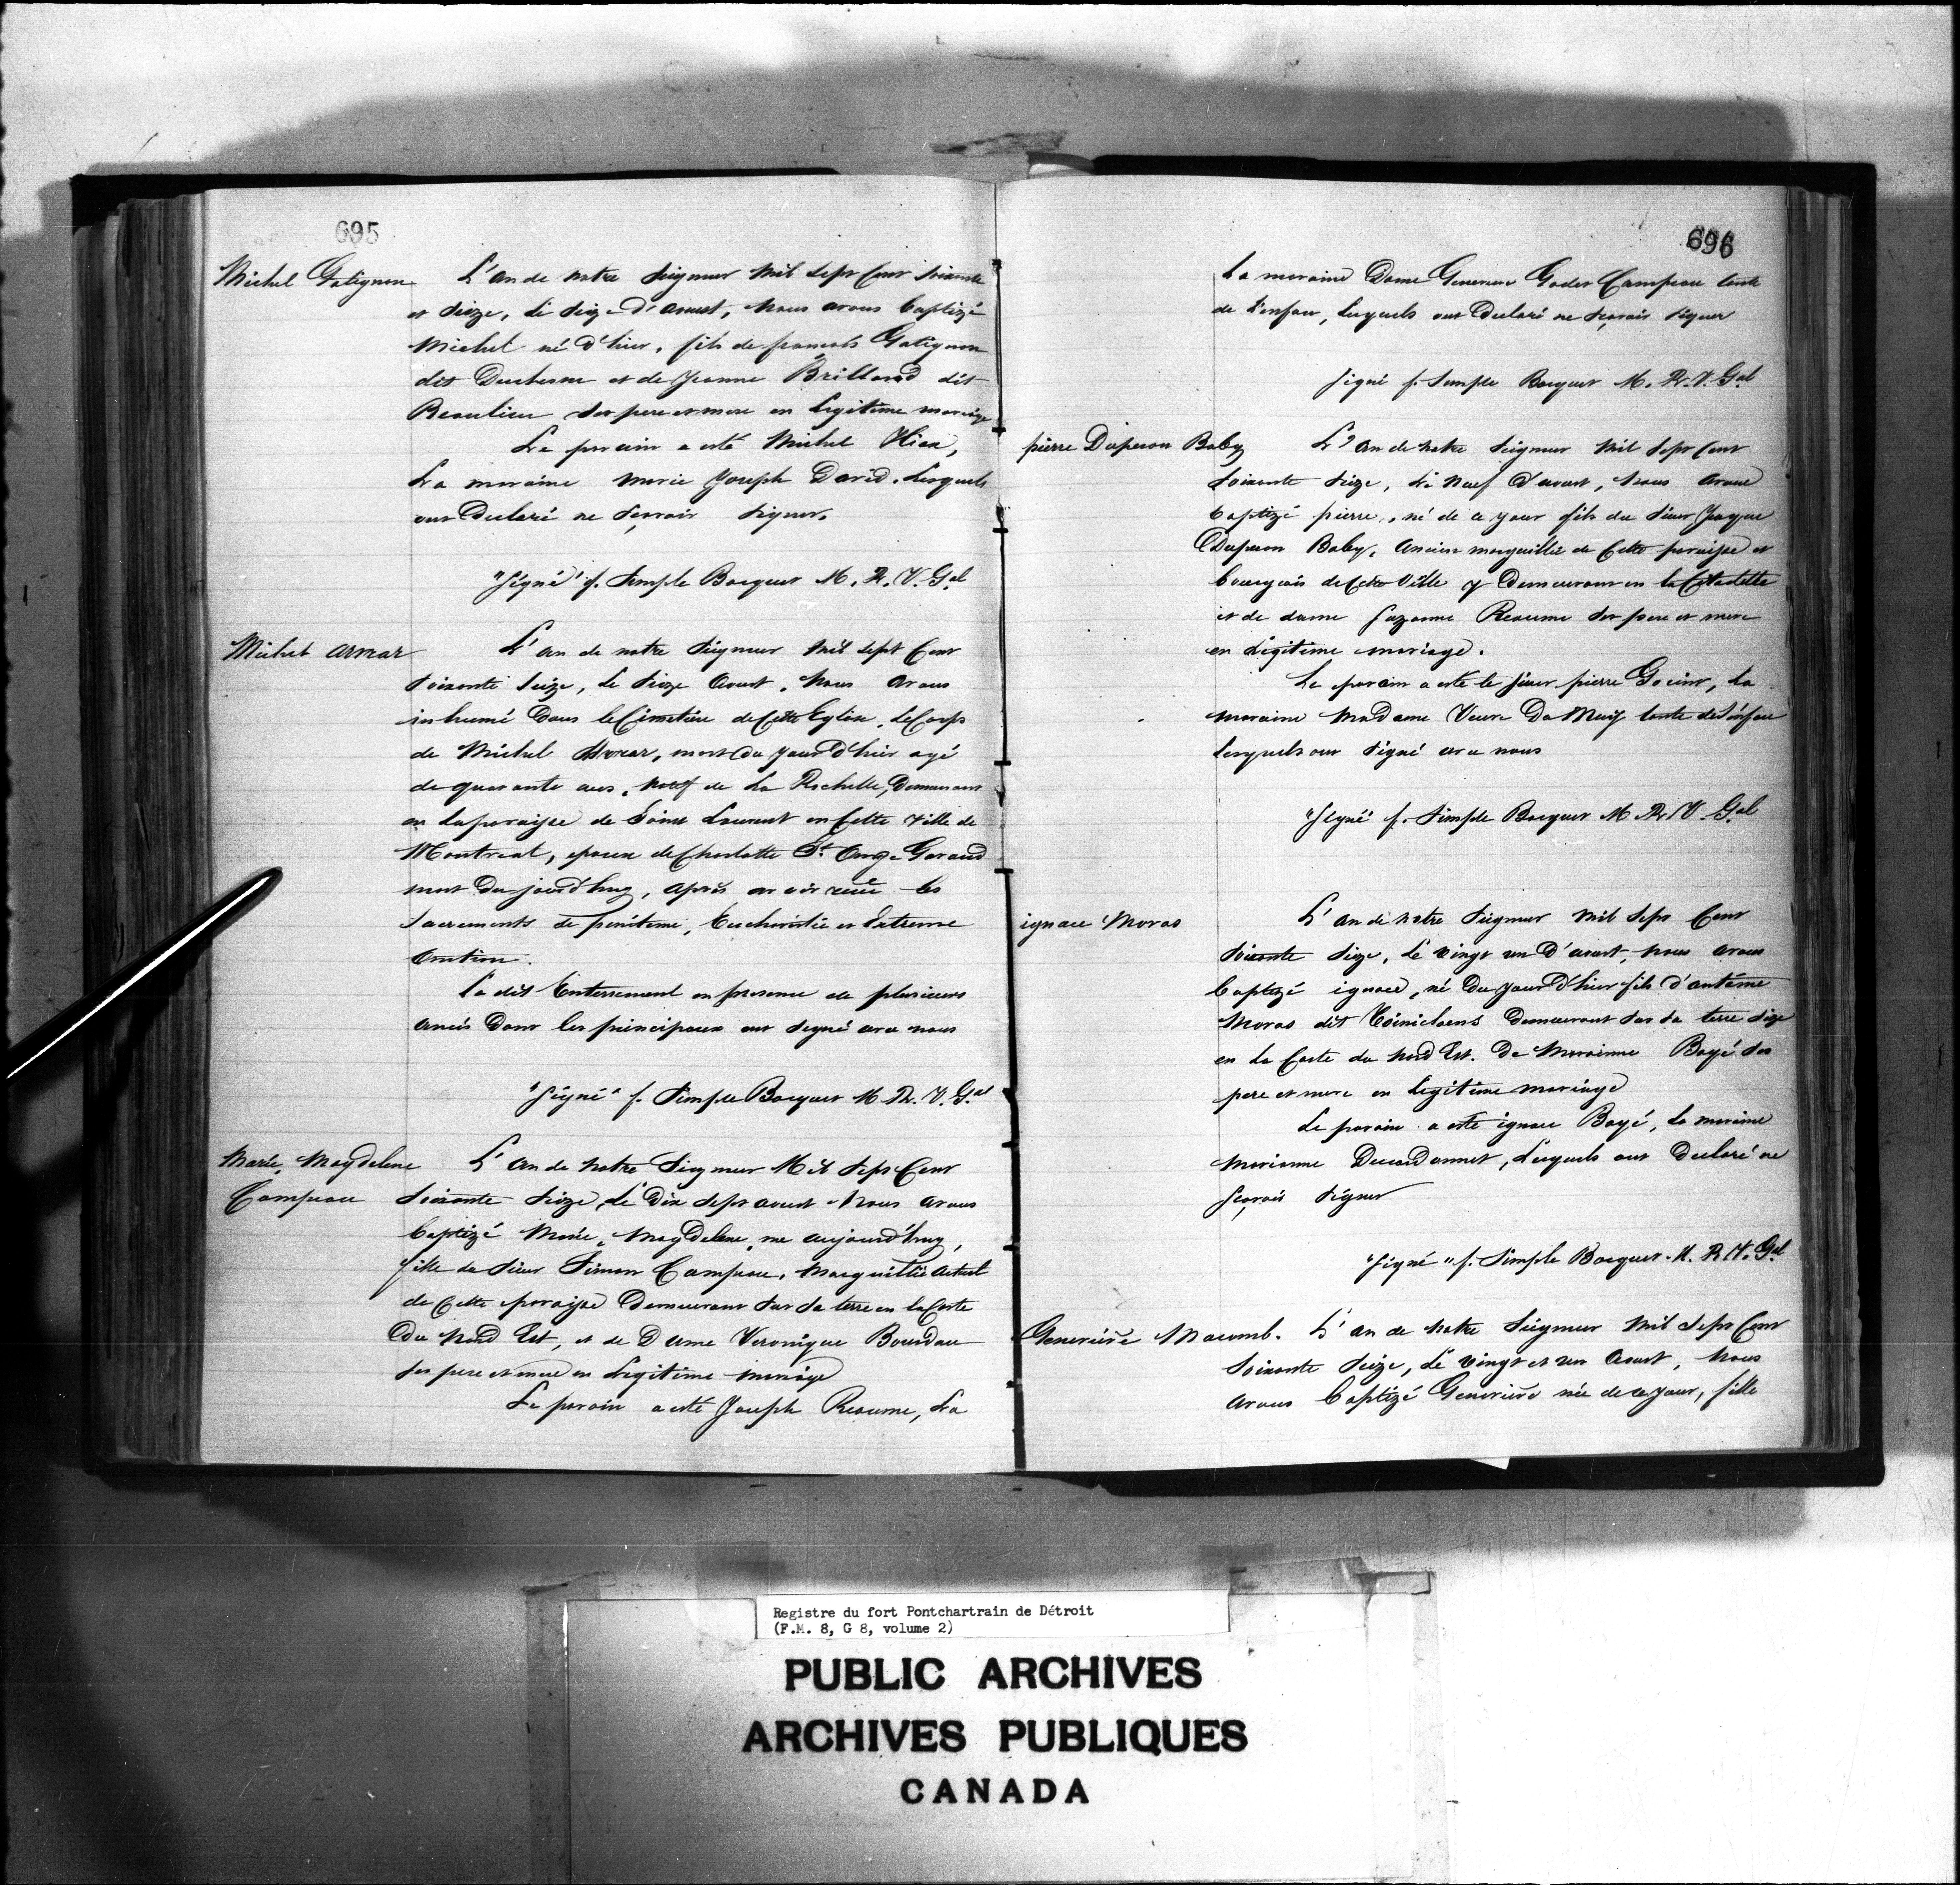 695
Michel Gatignon
L'an de notre Seigneur mil sept Cent Soixante
et Seize, le Seize d'aoust, nous avons baptizé
Michel né d'hier, fils de francois Gatignon
dit Duchesne et de Jeanne Brilland dit
Beaulieu Ses pere et mere en legitime mariage
Le parain a esté Michel Viau,
La maraine Marie Joseph David. Lesquels
ont Declaré ne Scavoir Signer.
"Signé" f. Simple Bocquet M. R. V. Gal
Michel amar
L'an de notre Seigneur mil sept Cent
Soixante Seize, le Seize Aoust, Nous avons
inhumé Dans le Cimetière de Cette Eglise, le Corps
de Michel, mort du jour d'hier agé
de quarante ans, natif de La Rochelle, Demeurant
en la paroisse de Saint Laurent en Cette ville de
Montreal, epoux de Charlotte St. Ange Garaud
mort du jourd'huy, après avoir reçue les
Sacrements de penitence, Eucharistie et Extreme
Onction.
Le dit Enterrement en presence de plusieurs
amis Dont les principaux ont Signé avec nous
"Signé" f. Simple Bocquet M. R. V. Gal
Marie, Magdelene
Campeau
L'an de Notre Seigneur Mil Sept Cent
Soixante Seize, Le Dix Sept aoust Nous avons
baptizé Marie, Magdelene, née aujourd'huy,
fille du Sieur Simon Campeau, Marguillié actuel
de Cette paroisse Demeurant Sur Sa terre en la Coste
Du Nord Est, et de Dame Veronique Bourdau
Ses pere et mere en Legitime mariage
Le parain a esté Joseph Reaume, La
696
La maraine Dame Genevieve Godet Campeau tante
de L'enfan, Lesquels ont Declaré ne Sçavoir Signer
Signé f. Simple Bocquet M. R. V. Gal
pierre Duperon Baby
L'an de notre Seigneur mil Sept Cent
Soixante Seize, Le Neuf d'aoust, Nous avons
baptizé pierre, né de ce jour fils du Sieur Jaque
Duperon Baby, Ancien marguillié de Cette paroisse et
bourgeois de Cette Ville y Demeurant en la Citadelle
et de dame Suzanne Reaume Ses pere et mere
en Legitime mariage.
Le parain a esté le Sieur pierre, La
maraine Madame Veuve Du Muy tante de L'enfan
Lesquels ont Signé avec nous
"Signé" f. Simple Bocquet M R. V. Gal
ignace Moras
L'an de notre Seigneur mil Sept Cent
Soixante Seize, Le vingt un D'aoust, nous avons
baptizé ignace, né Du jour D'hier fils d'antoine
Moras dit Demeurant Sur Sa terre Size
en La Coste du Nord Est. De Marianne Bayé Ses
pere et mere en Legitime mariage
Le parain a esté ignace Bayé, La maraine
Marianne, Lesquels ont Declaré ne
Sçavoir Signer
"Signé" f. Simple Bocquet. M. R. V. Gal
Genevieve Macomb.
L'an de Notre Seigneur Mil Sept Cent
Soixante Seize, Le vingt et un Aoust, Nous
avons baptizé Genevieve née de ce jour, fille
Registre du fort Pontchartrain de Détroit
(F.M. 8, G 8, volume 2)
PUBLIC ARCHIVES
ARCHIVES PUBLIQUES
CANADA